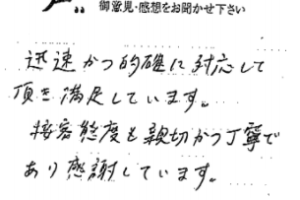 御意見・感想をお聞かせ下さい
迅速かつ的確に対応して
頂き満足しています。
接客態度も親切かつ丁寧で
あり感謝しています。